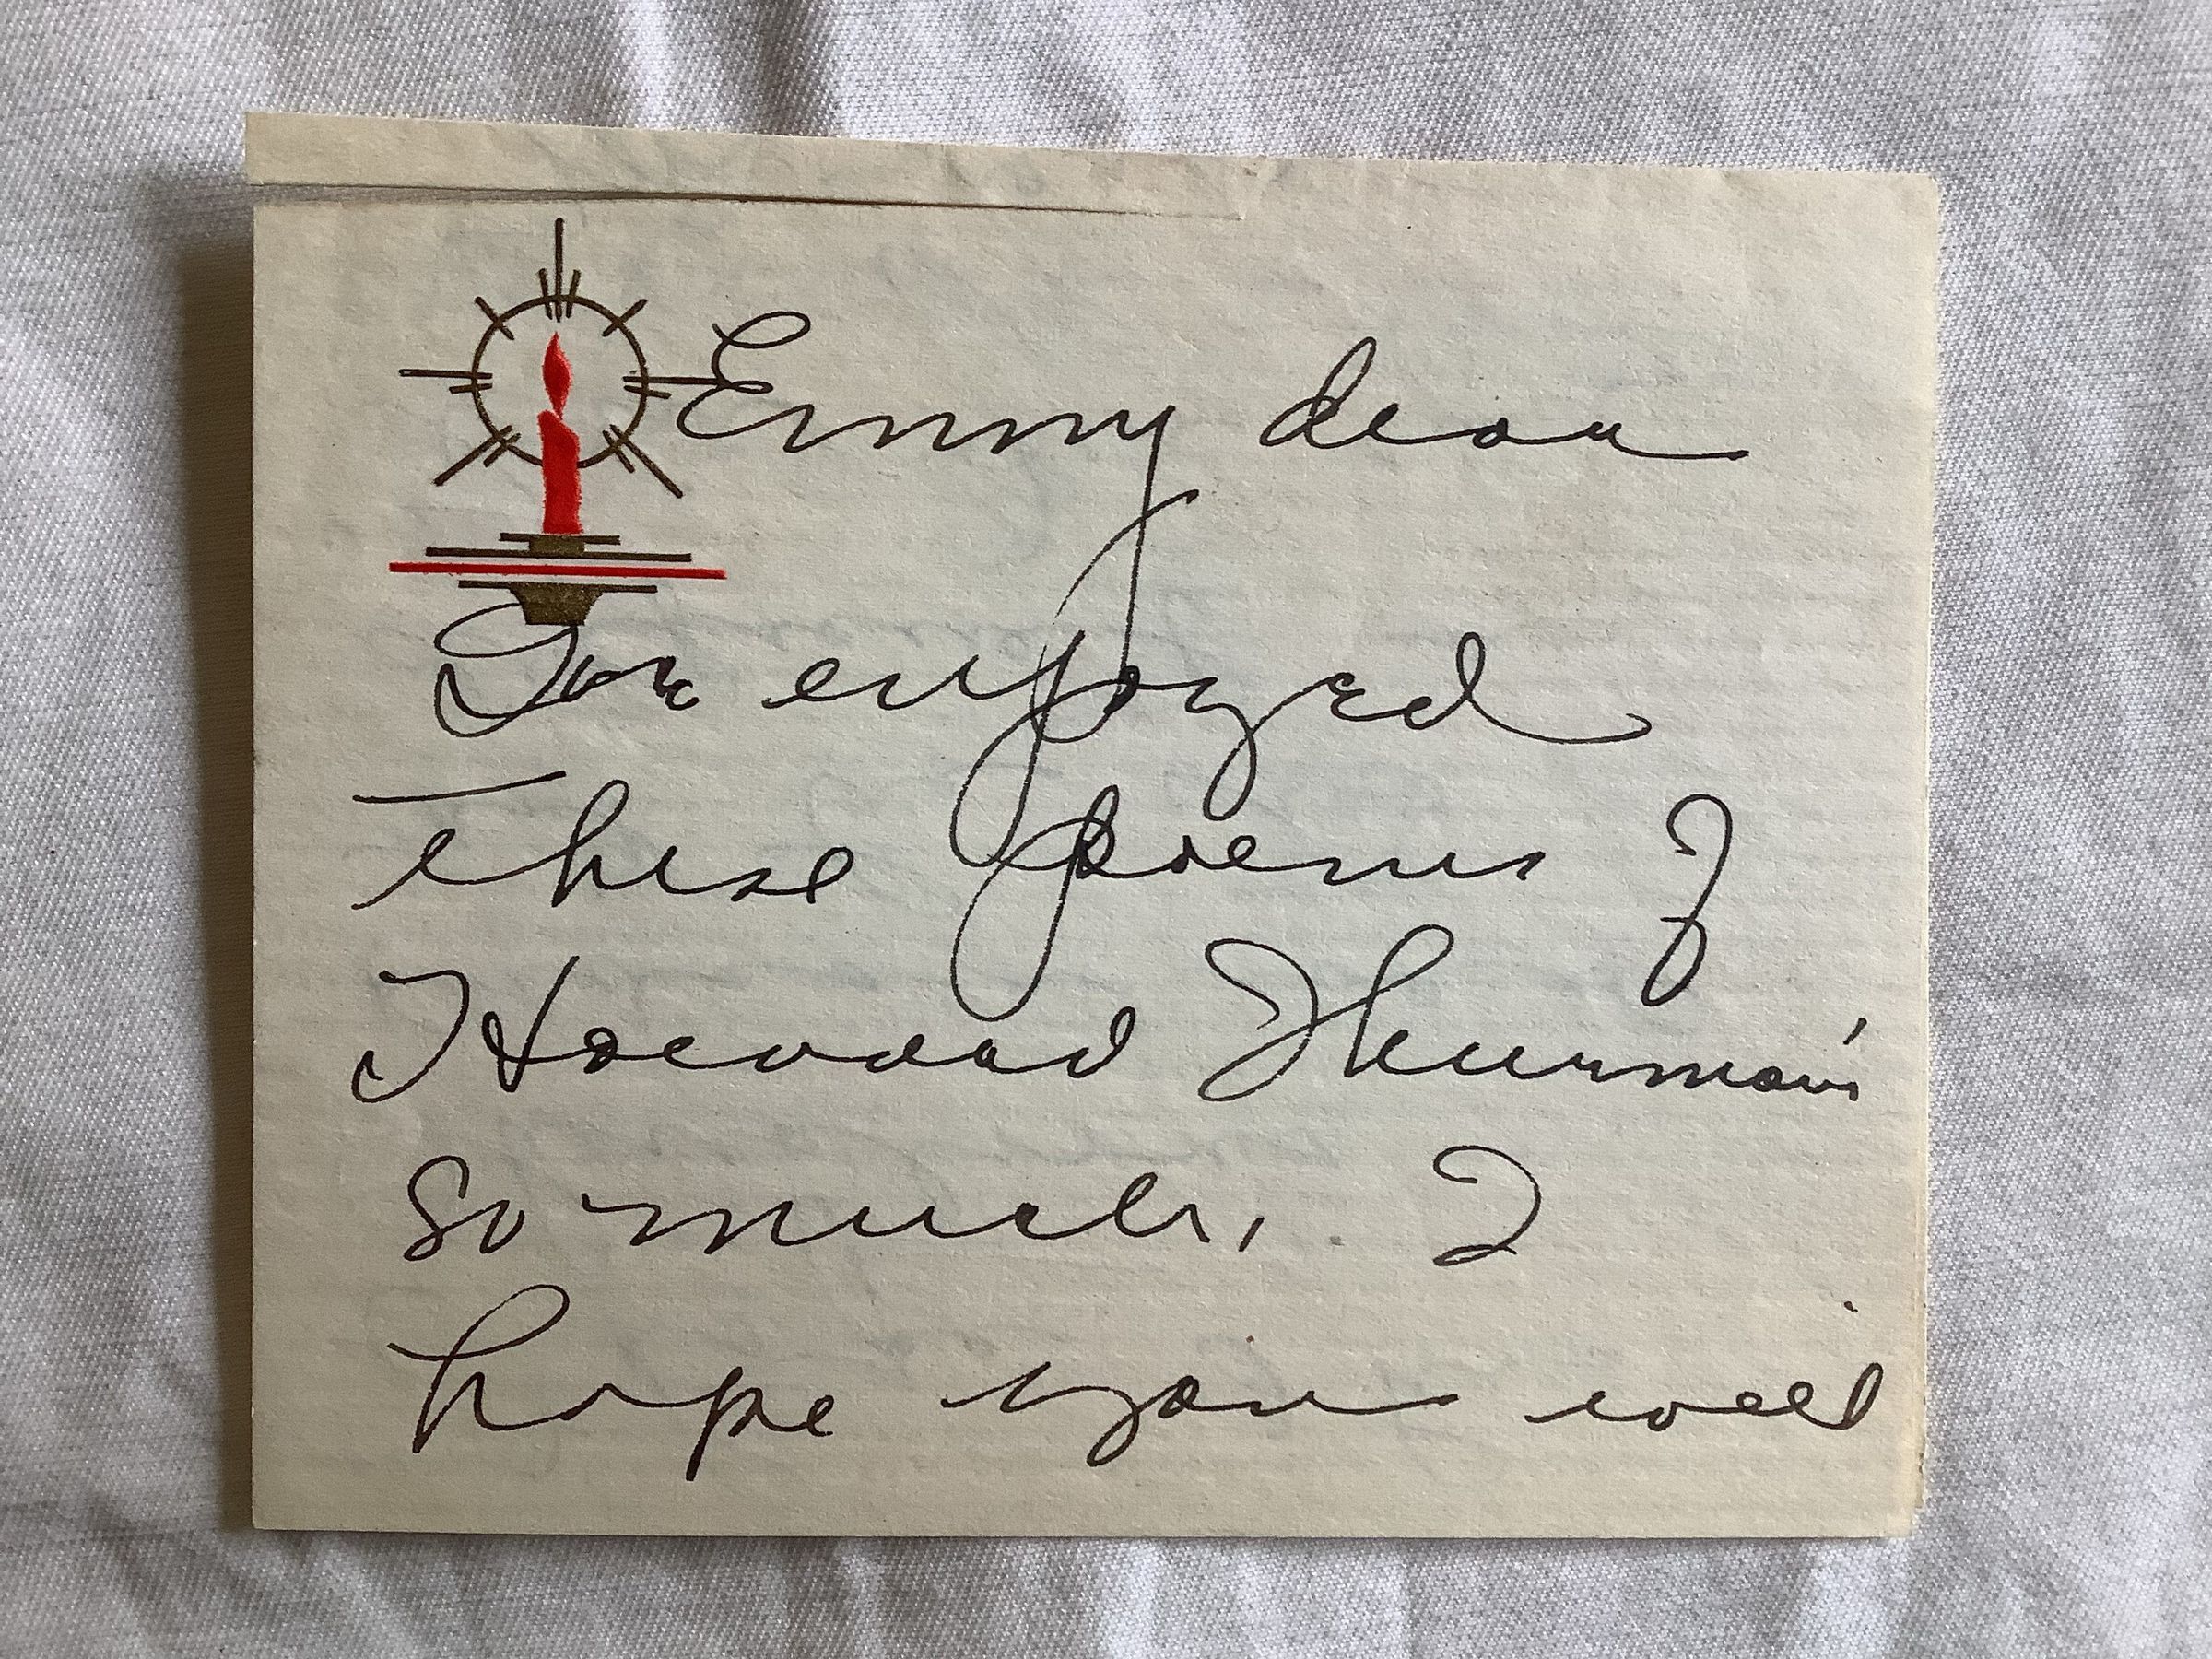 Emmy dear
I've enjoyed
these poems of
Howard Thurman's
so much. I
hope you will